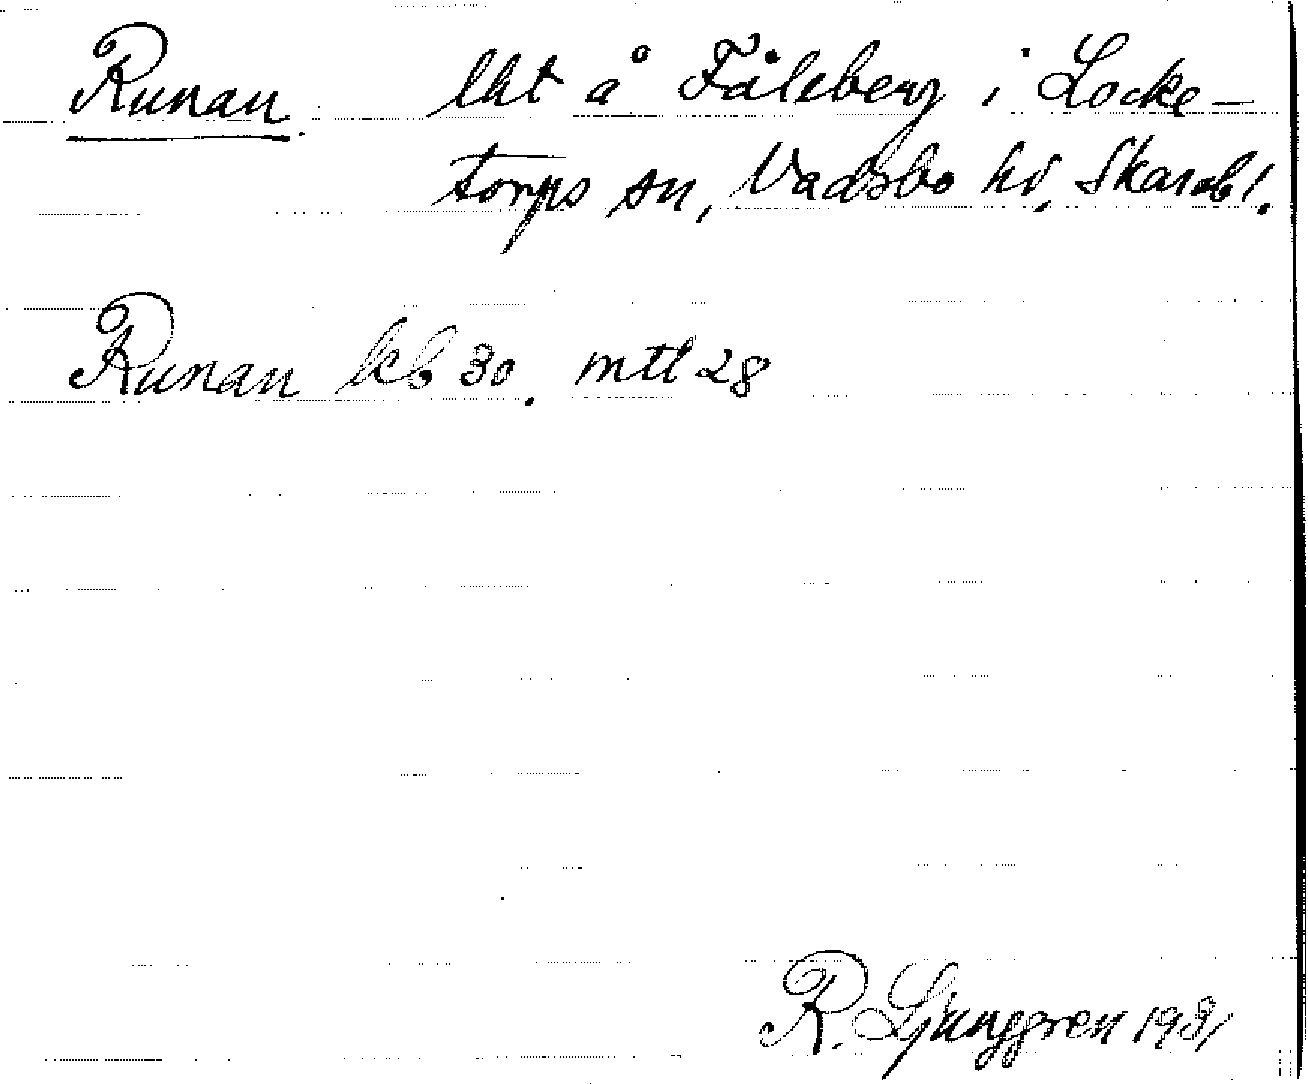 Runan. lht å Fåleberg i Locke-
torps sn, Vadsbo hd, Skarab l.
Runan kb 30. mtl 28
R. Ljunggren 1931